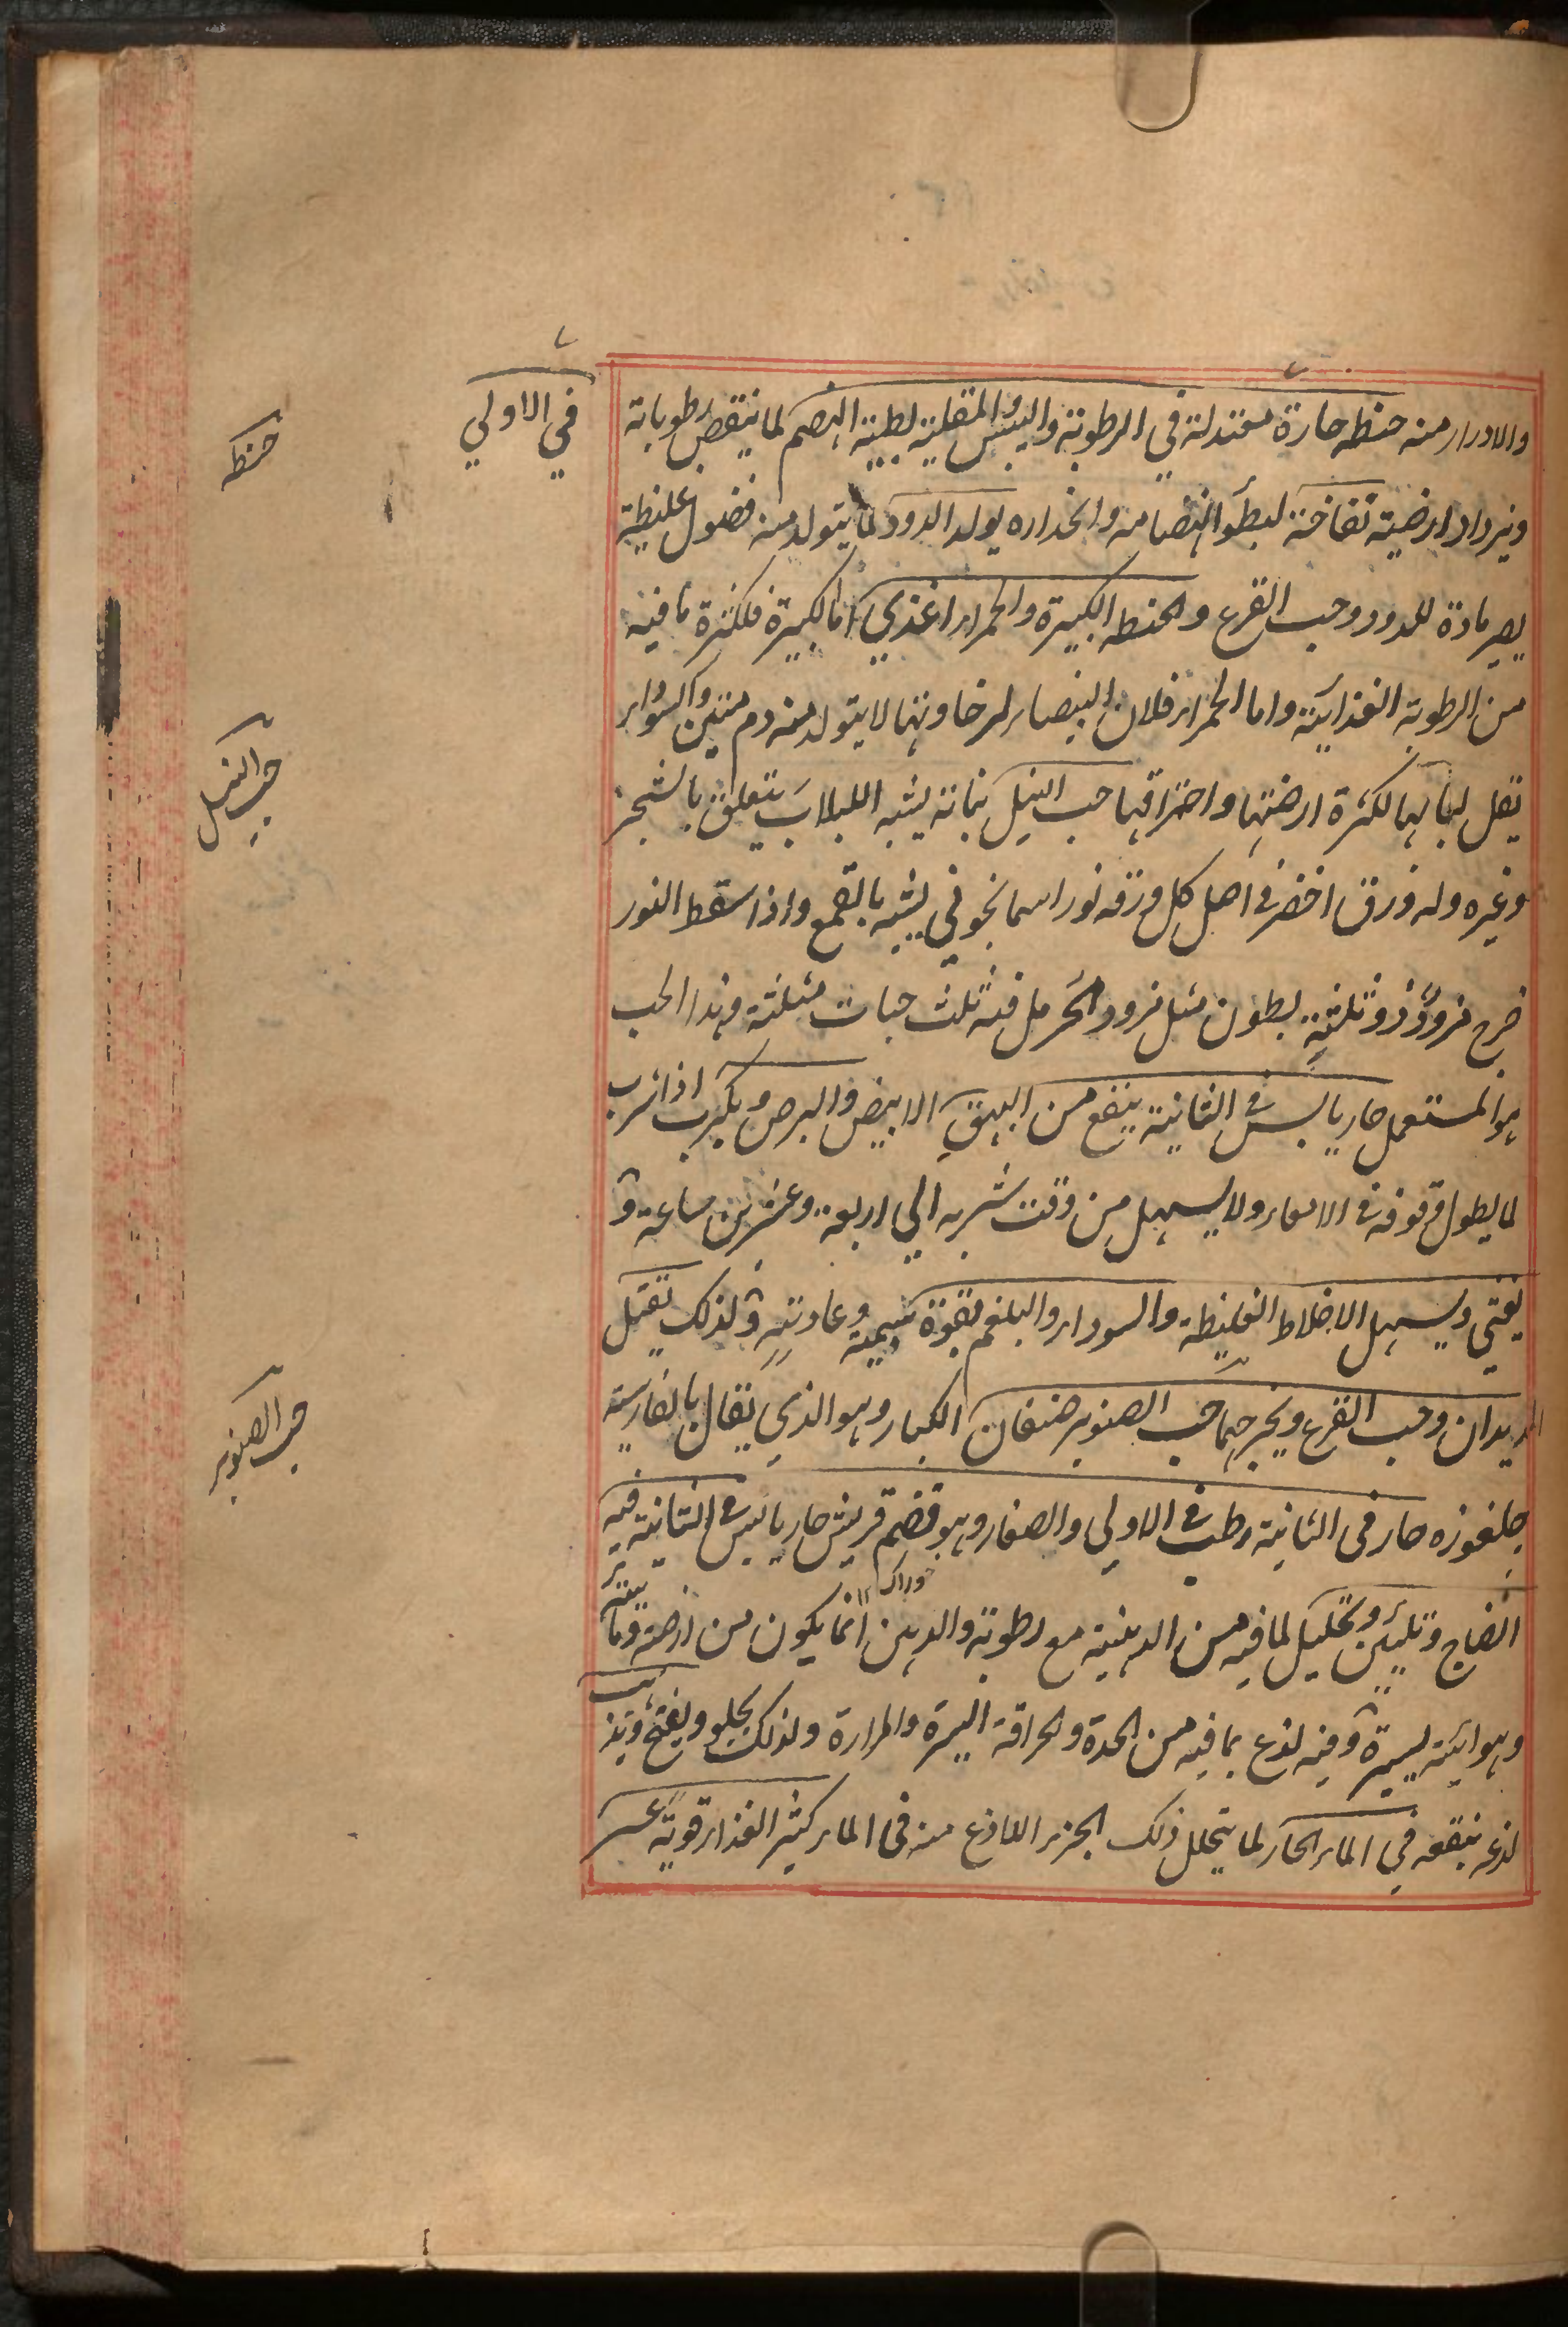 في الاولي
والادرار منه حنطه حارة معتدلة في الرطوبة واليبس والمقلية بطيئة الهضم لما ينقص رطوباته
ويزداد ارضيته نفاخة لبطؤ انهضامه وانحداره يولد الدود لما يتولد منه فضول غليظة
يصير مادة للدود وحب القرع والحنطه الكبيرة والحمراء اغذي اما الكبيرة فلكثرة ما فيه
من الرطوبة الغذائية واما الحمراء فلان البيضاء لرخاوتها لا يتولد منه دم متين والسوداء
يقل لبابها لكثرة ارضيتها واحتراقها حب النيل نباته يشبه اللبلاب يتعلق بالشجر
وغيره وله ورق اخضر في اصل كل ورقه نور اسمانجوني يشبه بالقمع واذا سقط النور
خرج مزود ذو ثلثة بطون مثل مزود الحرمل فيه ثلث حبات مثلثة وهذا الحب
هو المستعمل حار يابس في الثانية ينفع من البهق الابيض والبرص ويكرب اذا شرب
لما يطول وقوفه في الامعاء ولا يسهل من وقت شربه الي اربعة وعشرين ساعة و
يغثي ويسهل الاخلاط الغليظة والسوداء والبلغم بقوة سمية وعادته ولذلك يقتل
الديدان وحب القرع ويخرجهما حب الصنوبر صنفان الكبار وهو الذي يقال بالفارسية
جلغوزه حار في الثانية رطب في الاولي والصغار وهو قضم قريش حار يابس في الثانية فيه
انضاج وتليين وتحليل لما فيه من الدهنية مع رطوبة والدهن انما يكون من ارضية ومائية
وهوائية يسيرة وفيه لذع بما فيه من الحدة والحرافة اليسيرة والمرارة ولذلك يجلو ويفتح ويذهب
لذعه بنقعه في الماء الحار لما يتحلل ذلك الجزء اللاذع منه في الماء كثير الغذاء قوية عسر
حنطه
حب النيل
حب الصنوبر